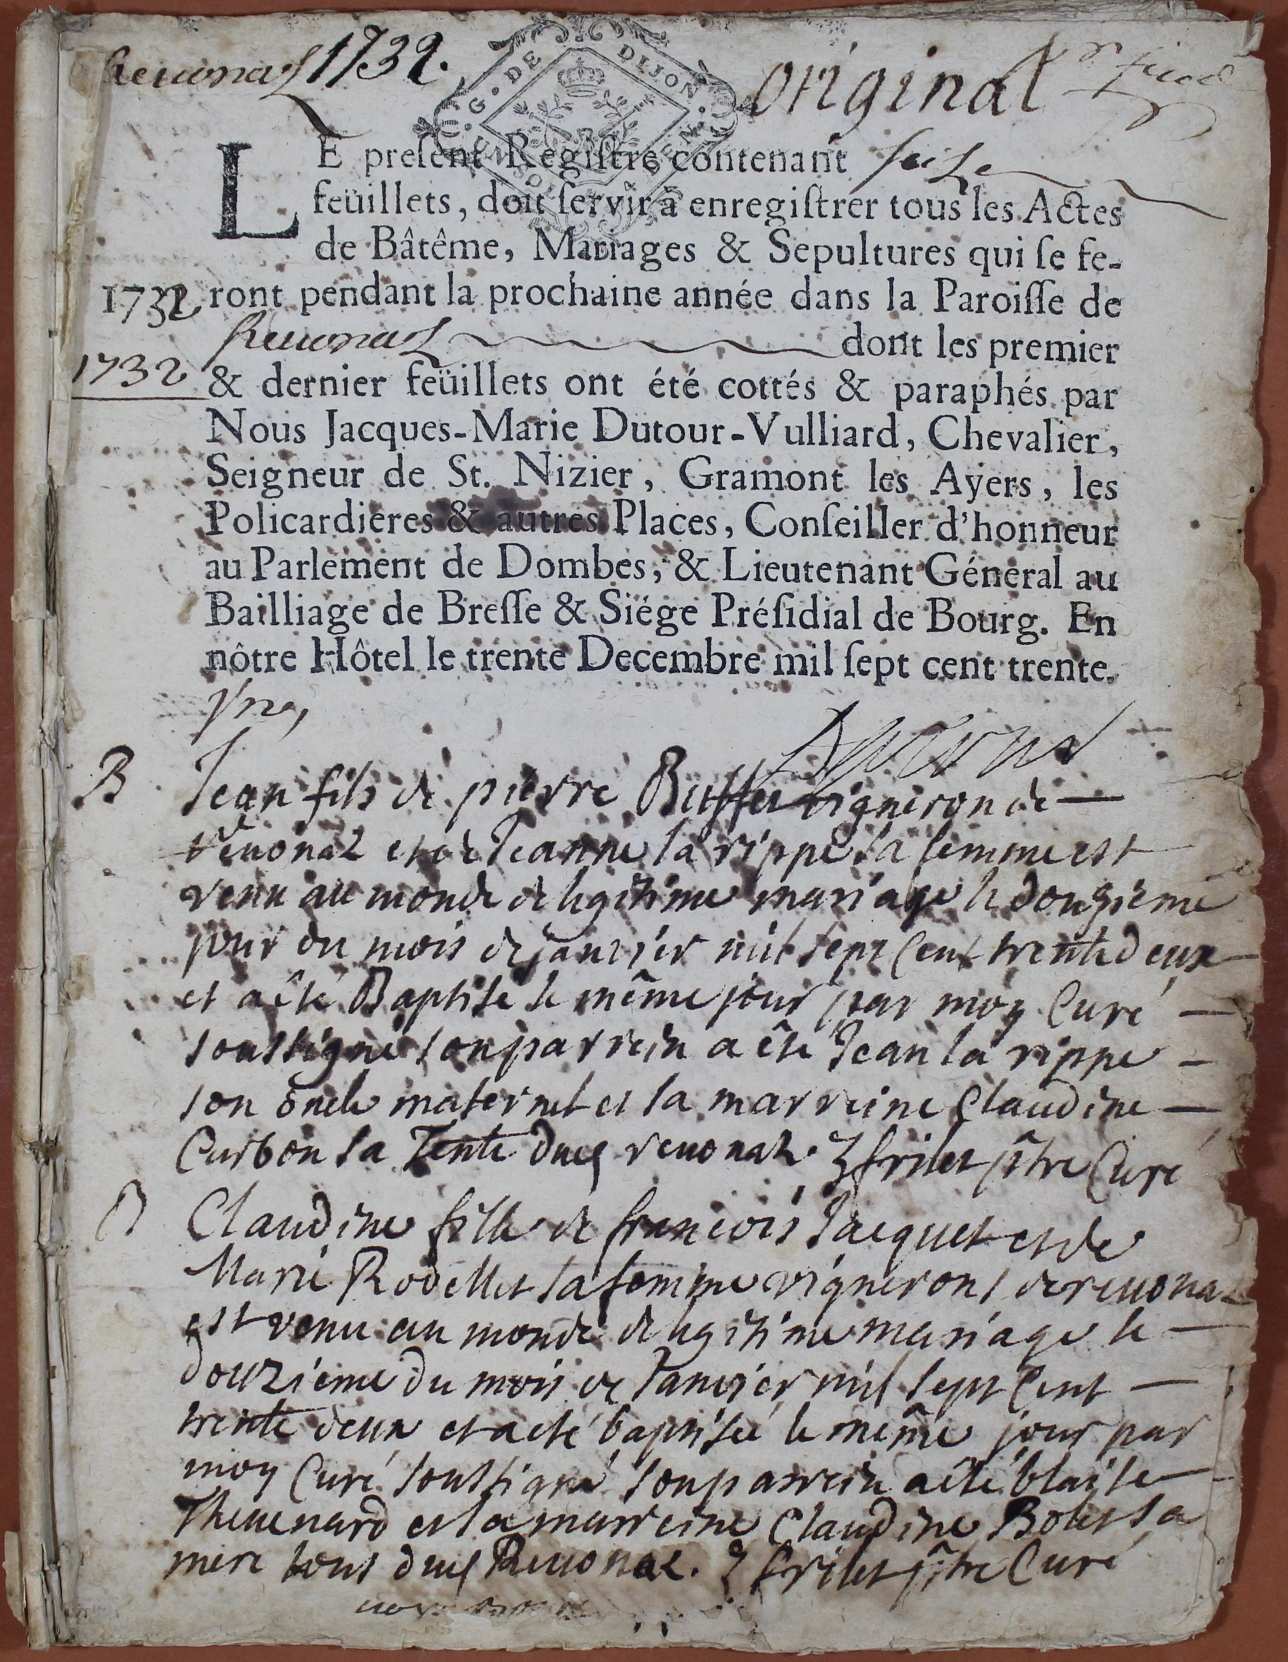 Reuonas 1732.
original
G. DE DIJON
LE preſent Regiſtre contenant seize
feüillets, doit ſervir à enregiſtrer tous les Actes
de Bâtême, Mariages & Sepultures qui ſe fe-
1732 ront pendant la prochaine année dans la Paroiſſe de
Reuonas dont les premier
1732
& dernier feüillets ont été cottés & paraphés par
Nous Jacques-Marie Dutour-Vulliard, Chevalier,
Seigneur de St. Nizier, Gramont les Ayers, les
Policardieres & autres Places, Conſeiller d'honneur
au Parlement de Dombes, & Lieutenant Général au
Bailliage de Breſſe & Siége Préſidial de Bourg. En
nôtre Hôtel le trente Decembre mil ſept cent trente.
yne,
B Jean fils de pierre Buffet vigneron de
reuonaz et de Jeanne la rippe sa femme est
venu au monde de legitime mariage le douzieme
jour du mois de janvier mil sept cent trente deux
et a été Baptisé le même jour par moy Curé
soussigné son parrein a été Jean la rippe
son oncle maternel et la marreine Claudine
Curbon sa Tente dud reuonaz. frilet ptre Curé
B Claudine fille de francois Jacquet et de
Marie Rodellet sa femme vignerons de reuonaz
est venu au monde de legitime mariage le
douzieme du mois de Janvier mil sept Cent
trente deux et a eté baptisée le même jour par
moy Curé soussigné son parrein a été blayse
Theuenard et la marreine Claudine Bolet sa
mere tous dud Reuonaz. frilet ptre Curé